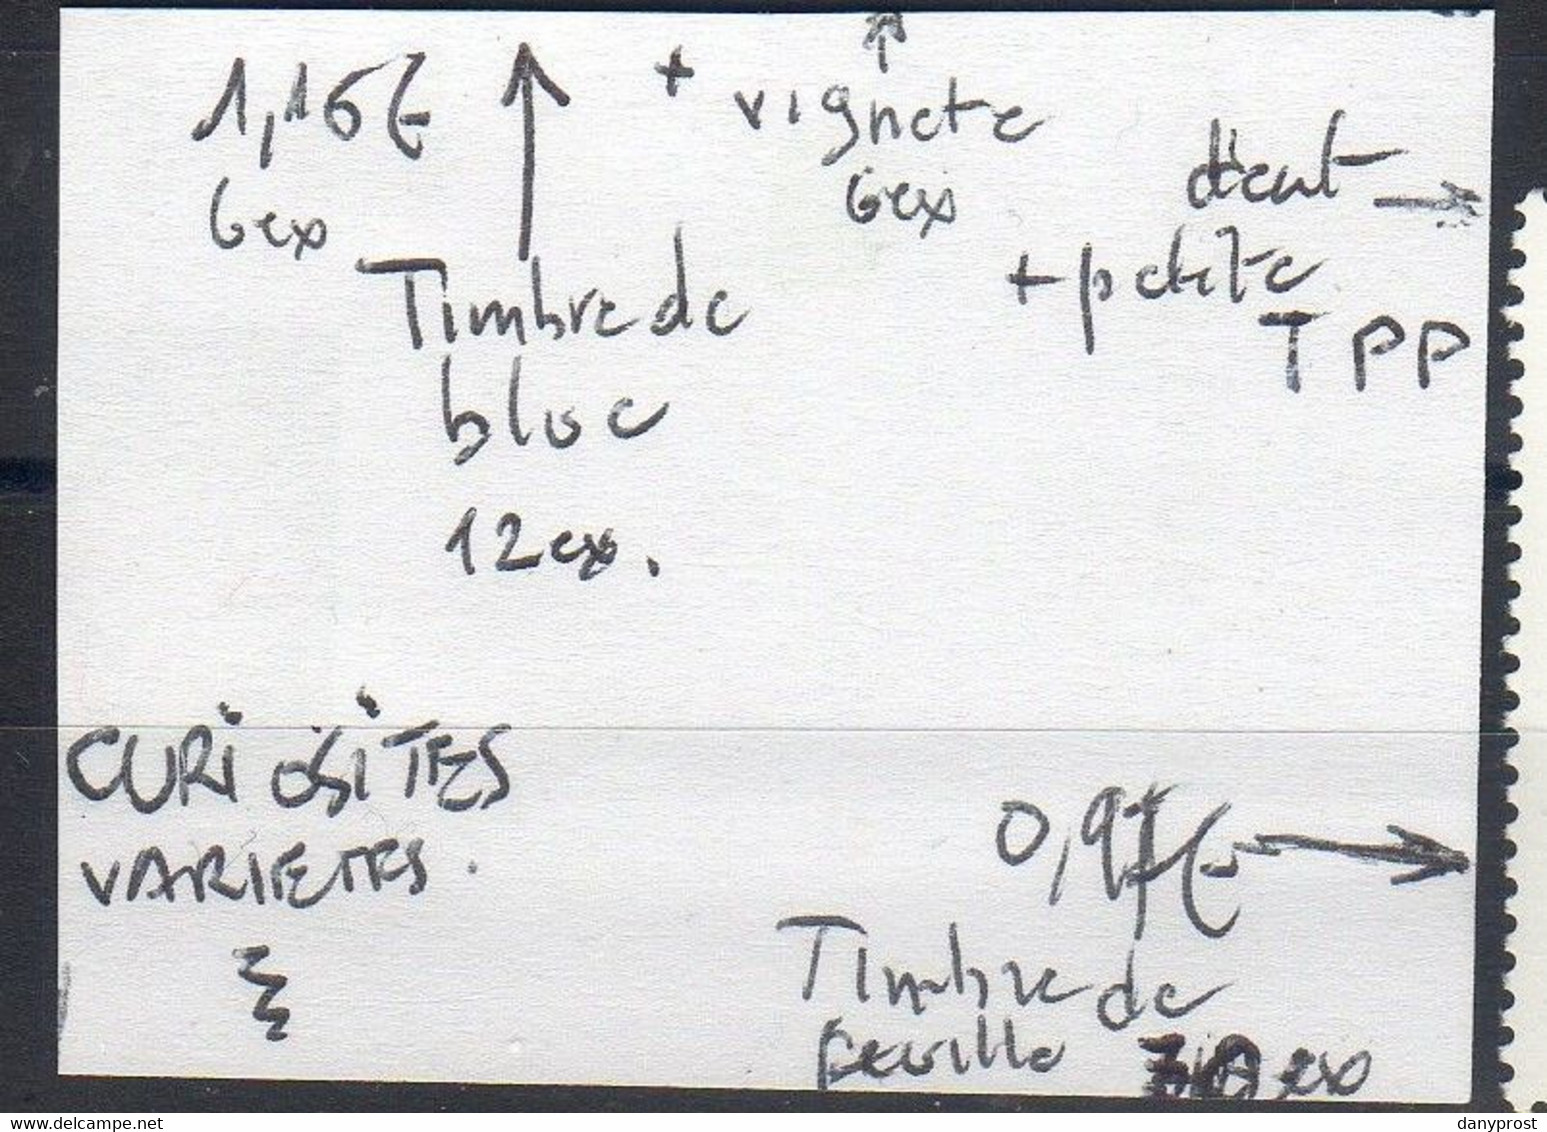 1,16€ + vignete
6ex 6ex
Timbre de
bloc
12ex.
d'ent
+ petite
TPP
CURiOSiTES
VARIETES.
0,97€
Timbre de
feuille 30 ex
danyprost